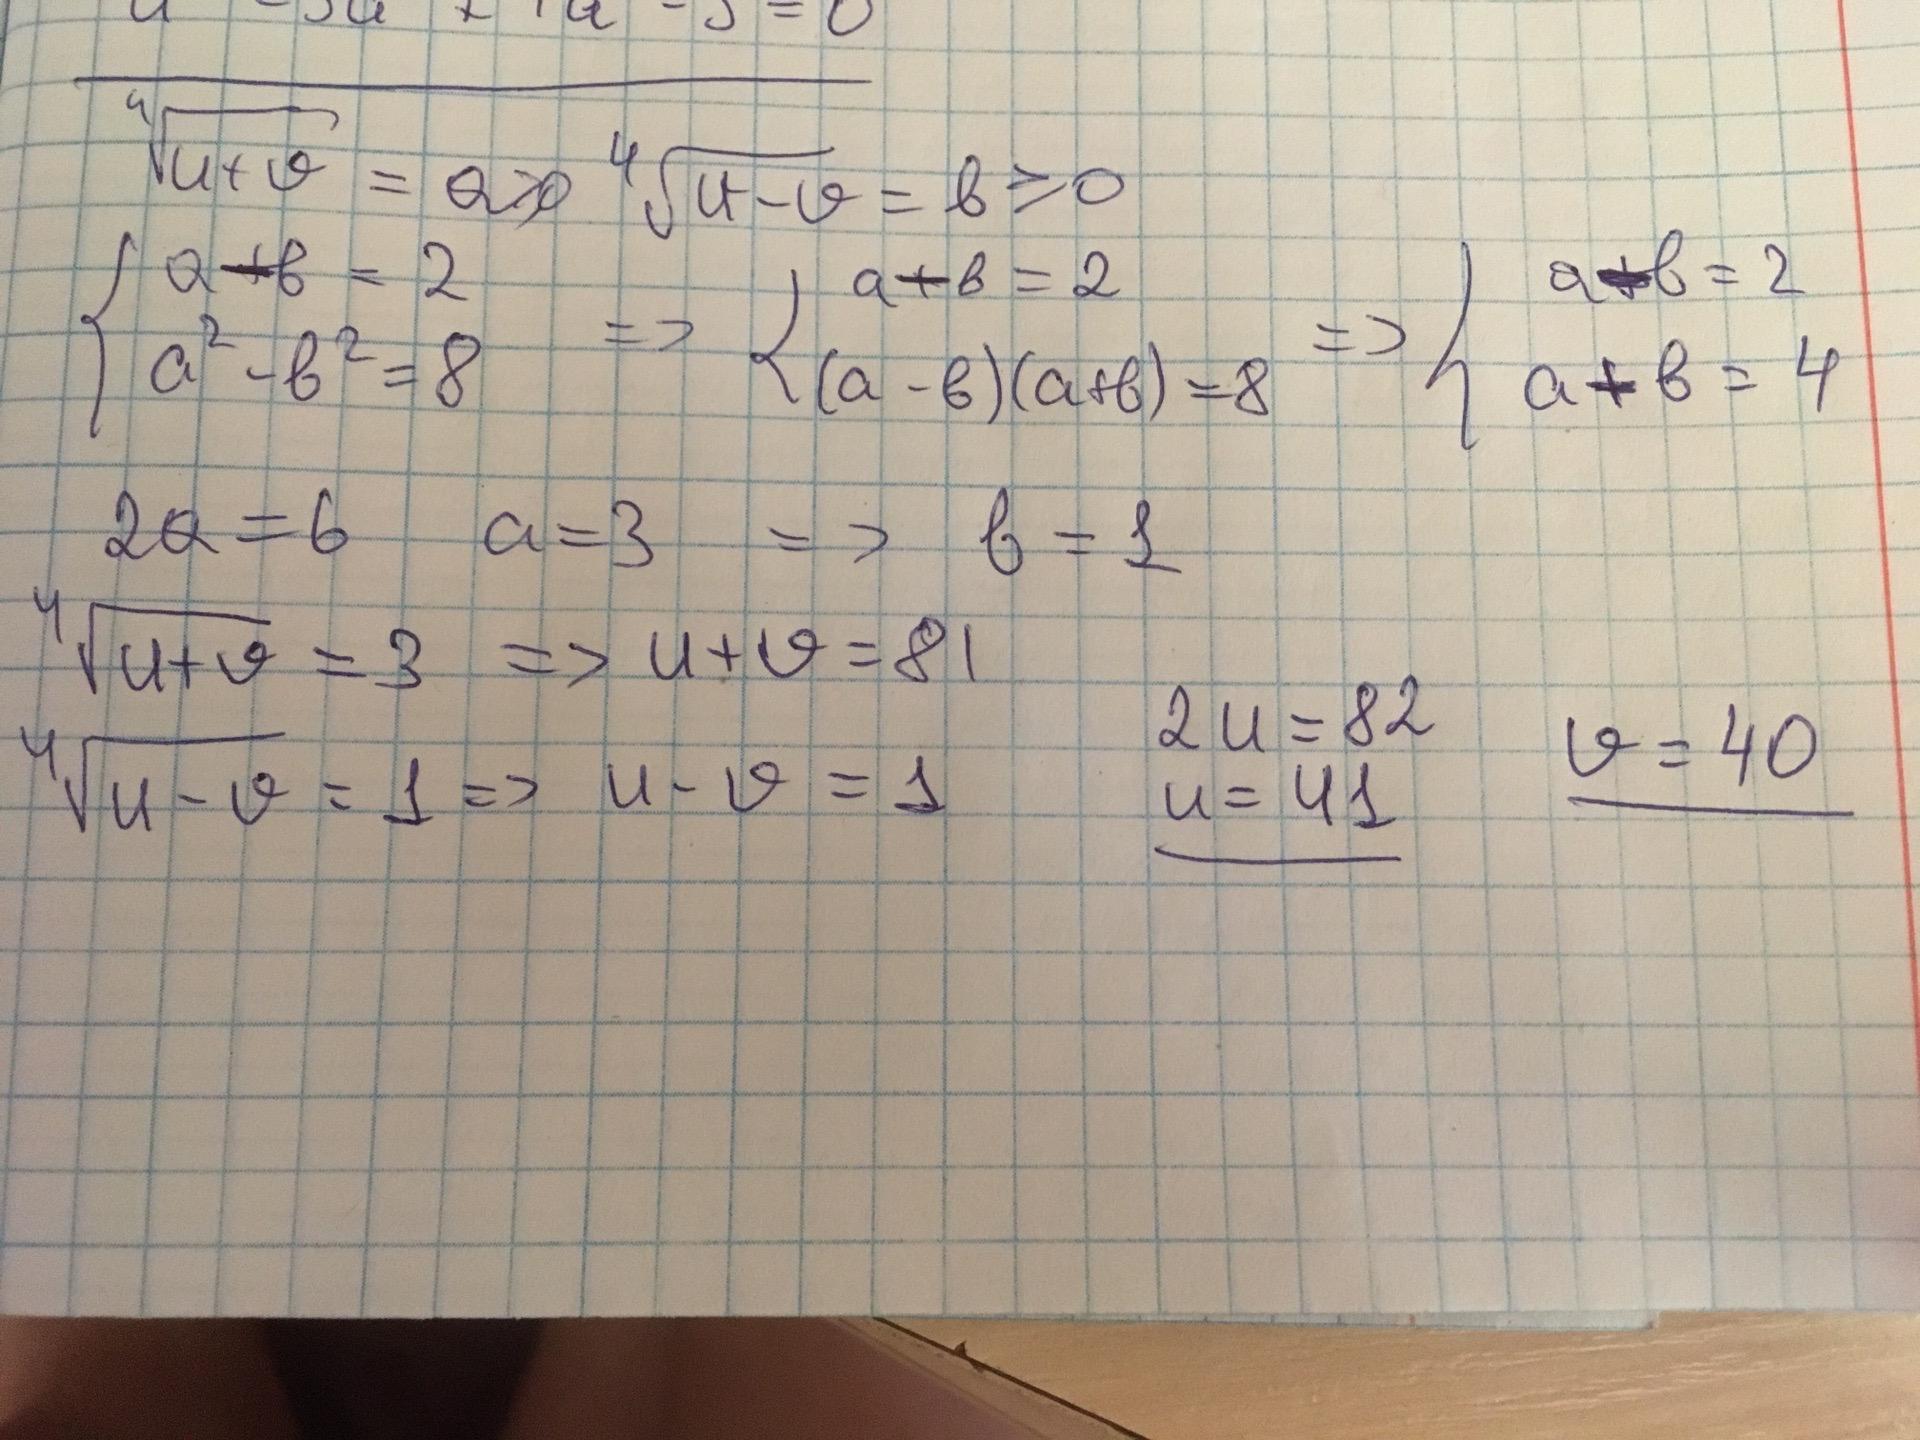 - 5u² + 4u - 5 = 0
⁴√(u+v) = a ≥ 0 ⁴√(u-v) = b ≥ 0
{ a-b = 2 => { a-b = 2 => { a-b = 2
a² - b² = 8 (a-b)(a+b) = 8 a+b = 4
2a = 6 a = 3 => b = 1
⁴√(u+v) = 3 => u+v = 81
⁴√(u-v) = 1 => u-v = 1
2u = 82
u = 41
v = 40